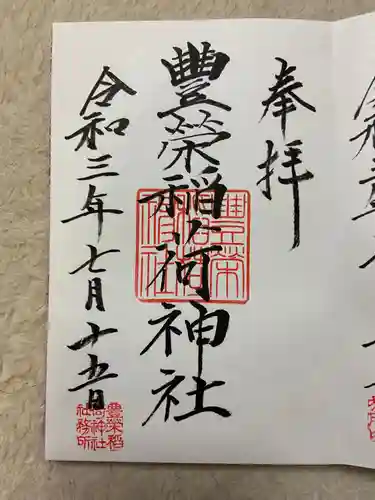 奉拝
豊榮稲荷神社
令和三年七月十五日
豊榮稲
荷神社
社務所